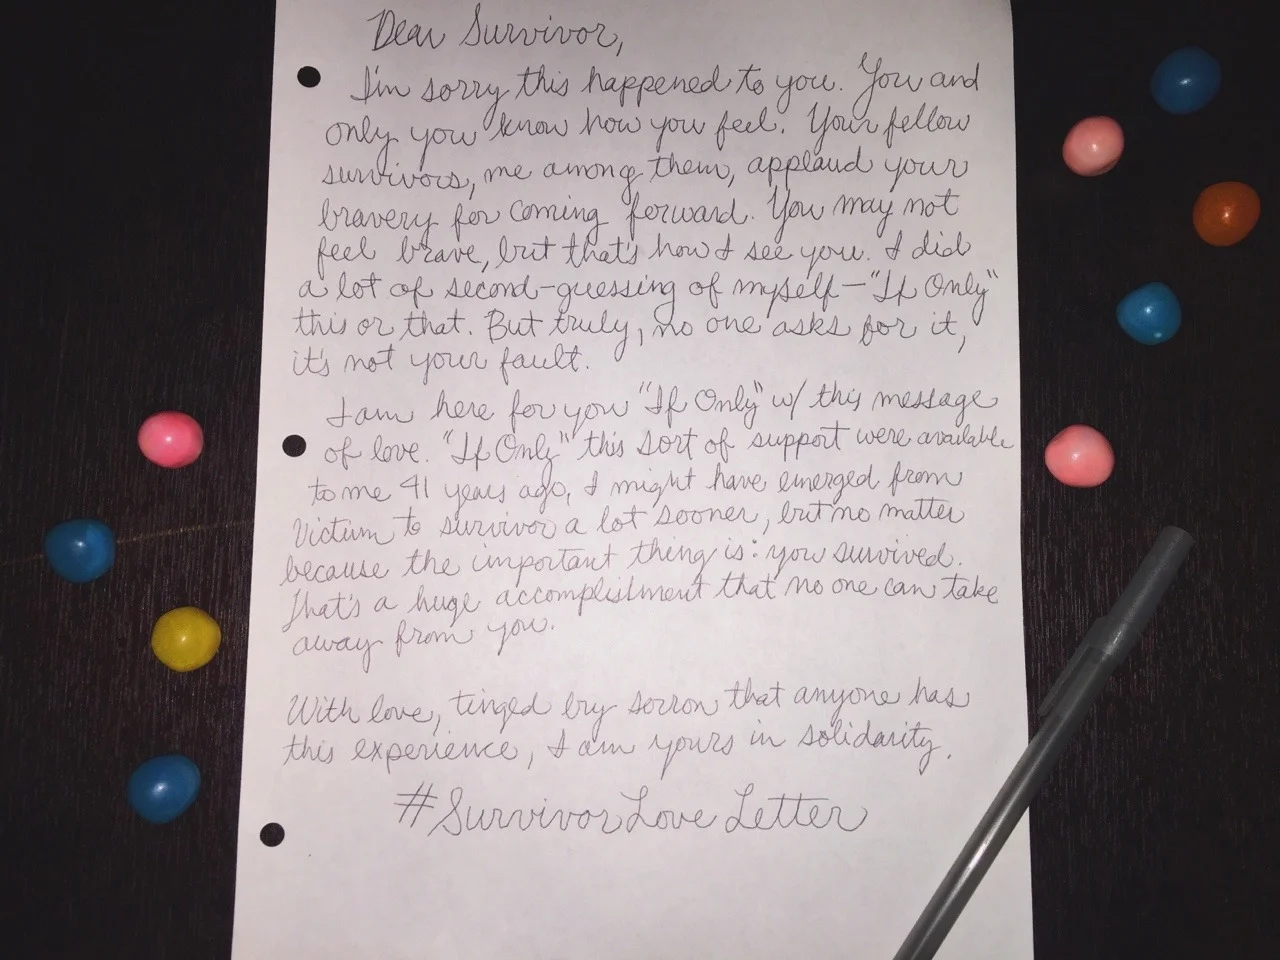 Dear Survivor,
I'm sorry this happened to you. You and
only you know how you feel. Your fellow
survivors, me among them, applaud your
bravery for coming forward. You may not
feel brave, but that's how I see you. I did
a lot of second-guessing of myself—"If Only"
this or that. But truly, no one asks for it,
it's not your fault.
I am here for you "If Only" w/ this message
of love. "If Only" this sort of support were available
to me 41 years ago, I might have emerged from
Victum to survivor a lot sooner, but no matter
because the important thing is: you survived.
That's a huge accomplishment that no one can take
away from you.
With love, tinged by sorrow that anyone has
this experience, I am yours in solidarity.
#SurvivorLoveLetter